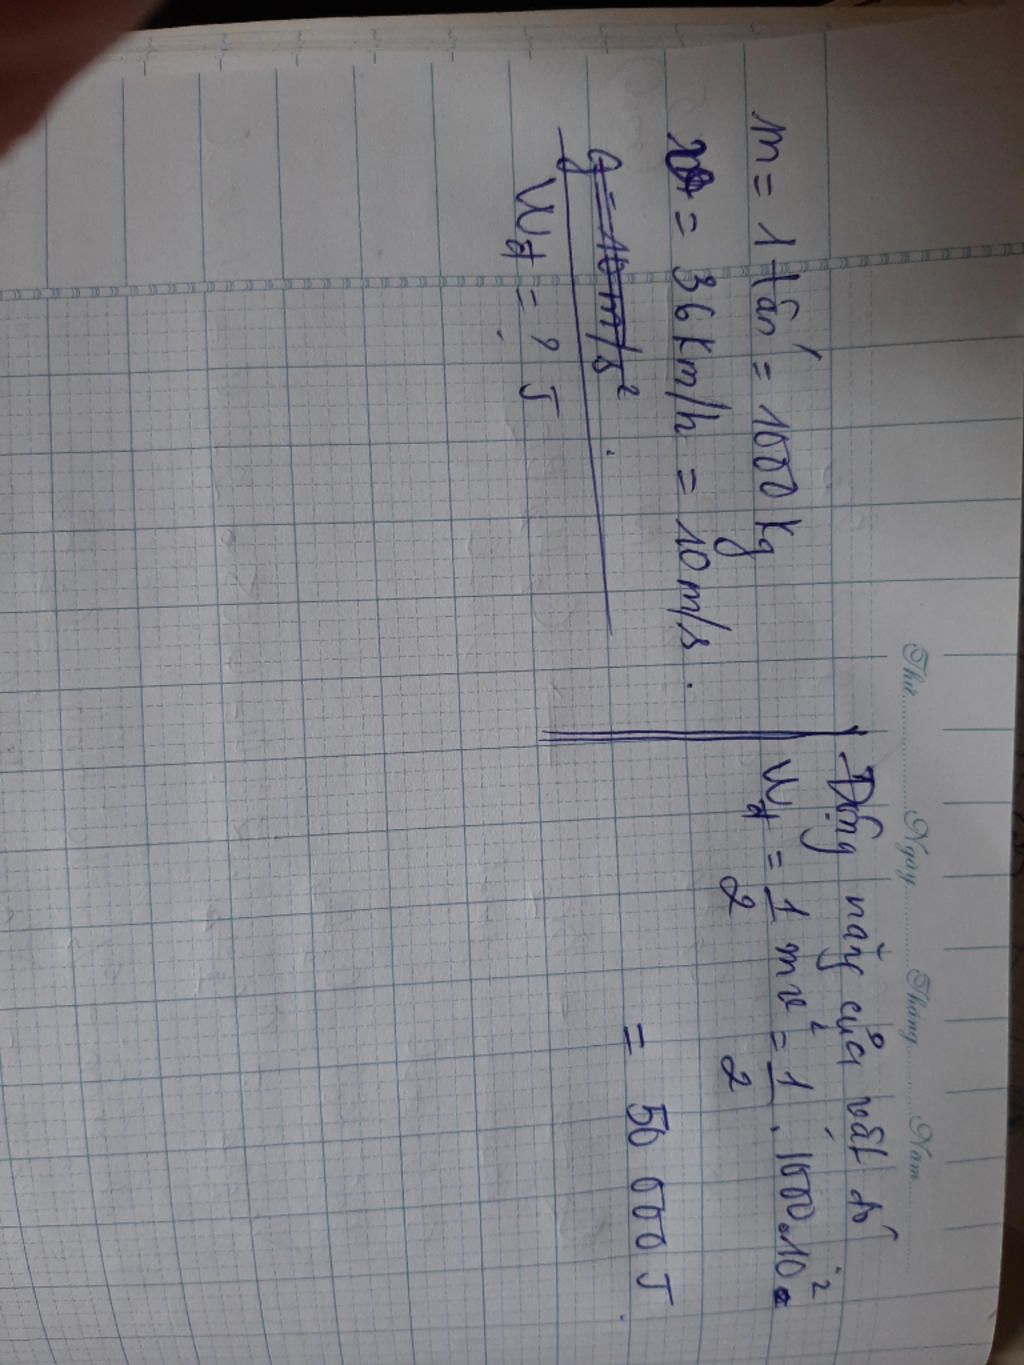 Thứ Ngày Tháng Năm
m = 1 tấn = 1000 kg
v = 36 km/h = 10 m/s.
g = 10 m/s²
Wđ = ? J
Động năng của vật đó
Wđ = 1/2 mv² = 1/2 . 1000.10²
= 50 000 J